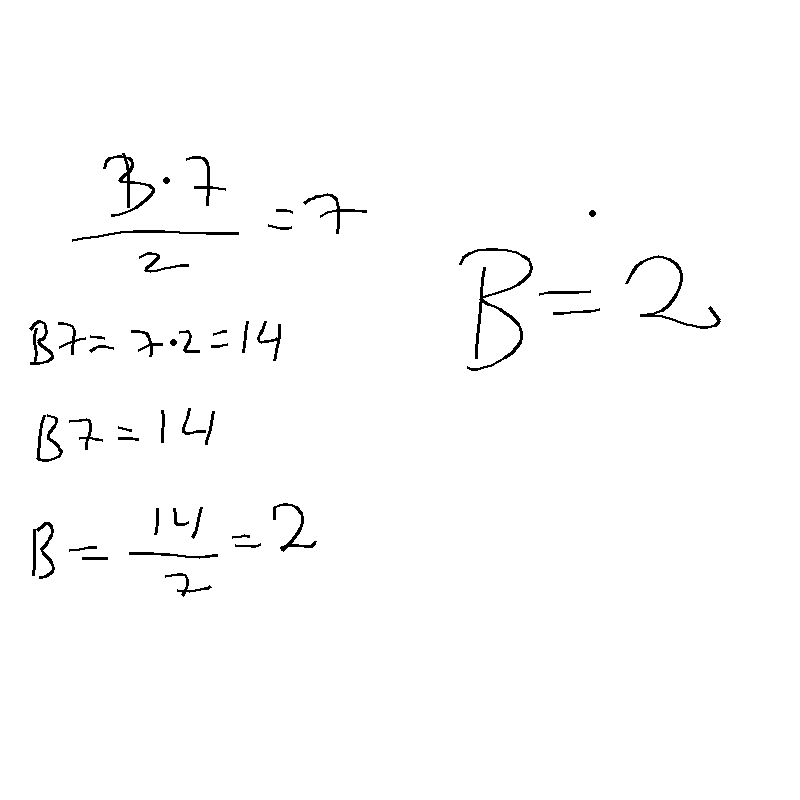 B·7
—— = 7
2
B7 = 7·2 = 14
B7 = 14
B = 14/7 = 2
B = 2